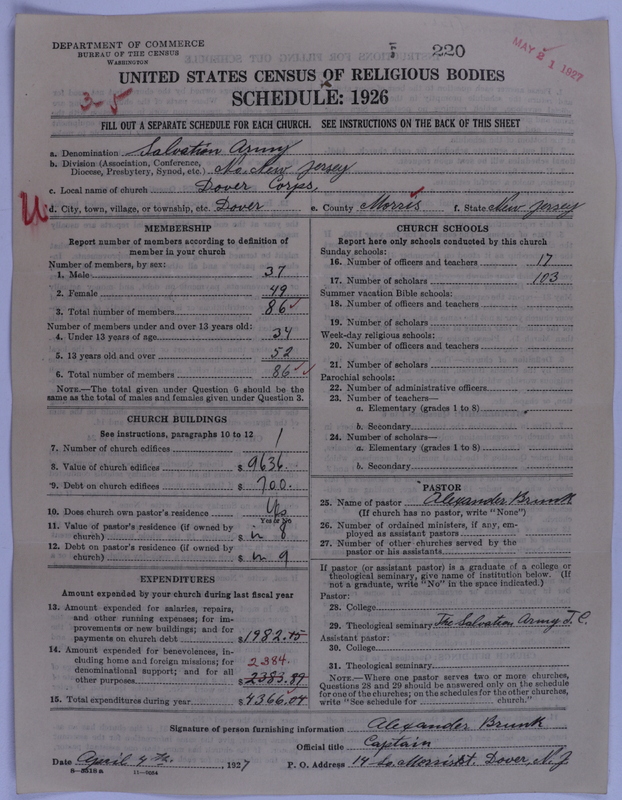 DEPARTMENT OF COMMERCE
BUREAU OF THE CENSUS
WASHINGTON
220
MAY 21 1927
UNITED STATES CENSUS OF RELIGIOUS BODIES
SCHEDULE: 1926
3-5
FILL OUT A SEPARATE SCHEDULE FOR EACH CHURCH. SEE INSTRUCTIONS ON THE BACK OF THIS SHEET
a. Denomination Salvation Army
b. Division (Association, Conference, Diocese, Presbytery, Synod, etc.) No. New Jersey
c. Local name of church Dover Corps
d. City, town, village, or township, etc. Dover e. County Morris f. State New Jersey
MEMBERSHIP
Report number of members according to definition of
member in your church
Number of members, by sex:
1. Male 37
2. Female 49
3. Total number of members 86
Number of members under and over 13 years old:
4. Under 13 years of age 34
5. 13 years old and over 52
6. Total number of members 86
NOTE.—The total given under Question 6 should be the
same as the total of males and females given under Question 3.
CHURCH BUILDINGS
See instructions, paragraphs 10 to 12
7. Number of church edifices 1
8. Value of church edifices $ 9636.
9. Debt on church edifices $ 700.
10. Does church own pastor's residence? Yes
Yes or No
11. Value of pastor's residence (if owned by
church) $ in 8
12. Debt on pastor's residence (if owned by
church) $ in 9
EXPENDITURES
Amount expended by your church during last fiscal year
13. Amount expended for salaries, repairs,
and other running expenses; for im-
provements or new buildings; and for
payments on church debt $ 1982.75
14. Amount expended for benevolences, in-
cluding home and foreign missions; for
denominational support; and for all
other purposes $ 2383.89
2384.
15. Total expenditures during year $ 4366.04
CHURCH SCHOOLS
Report here only schools conducted by this church
Sunday schools:
16. Number of officers and teachers 17
17. Number of scholars 103
Summer vacation Bible schools:
18. Number of officers and teachers
19. Number of scholars
Week-day religious schools:
20. Number of officers and teachers
21. Number of scholars
Parochial schools:
22. Number of administrative officers
23. Number of teachers—
a. Elementary (grades 1 to 8)
b. Secondary
24. Number of scholars—
a. Elementary (grades 1 to 8)
b. Secondary
PASTOR
25. Name of pastor Alexander Brunk
(If church has no pastor, write "None")
26. Number of ordained ministers, if any, em-
ployed as assistant pastors
27. Number of other churches served by the
pastor or his assistants
If pastor (or assistant pastor) is a graduate of a college or
theological seminary, give name of institution below. (If
not a graduate, write "No" in the space indicated.)
Pastor:
28. College
29. Theological seminary The Salvation Army T.C.
Assistant pastor:
30. College
31. Theological seminary
NOTE.—Where one pastor serves two or more churches,
Questions 28 and 29 should be answered only on the schedule
for one of the churches; on the schedules for the other churches,
write "See schedule for church."
Signature of person furnishing information Alexander Brunk
Official title Captain
Date April 4th, 1927 P. O. Address 14 So Morris St. Dover, N.J.
8-5518 a 11-9084